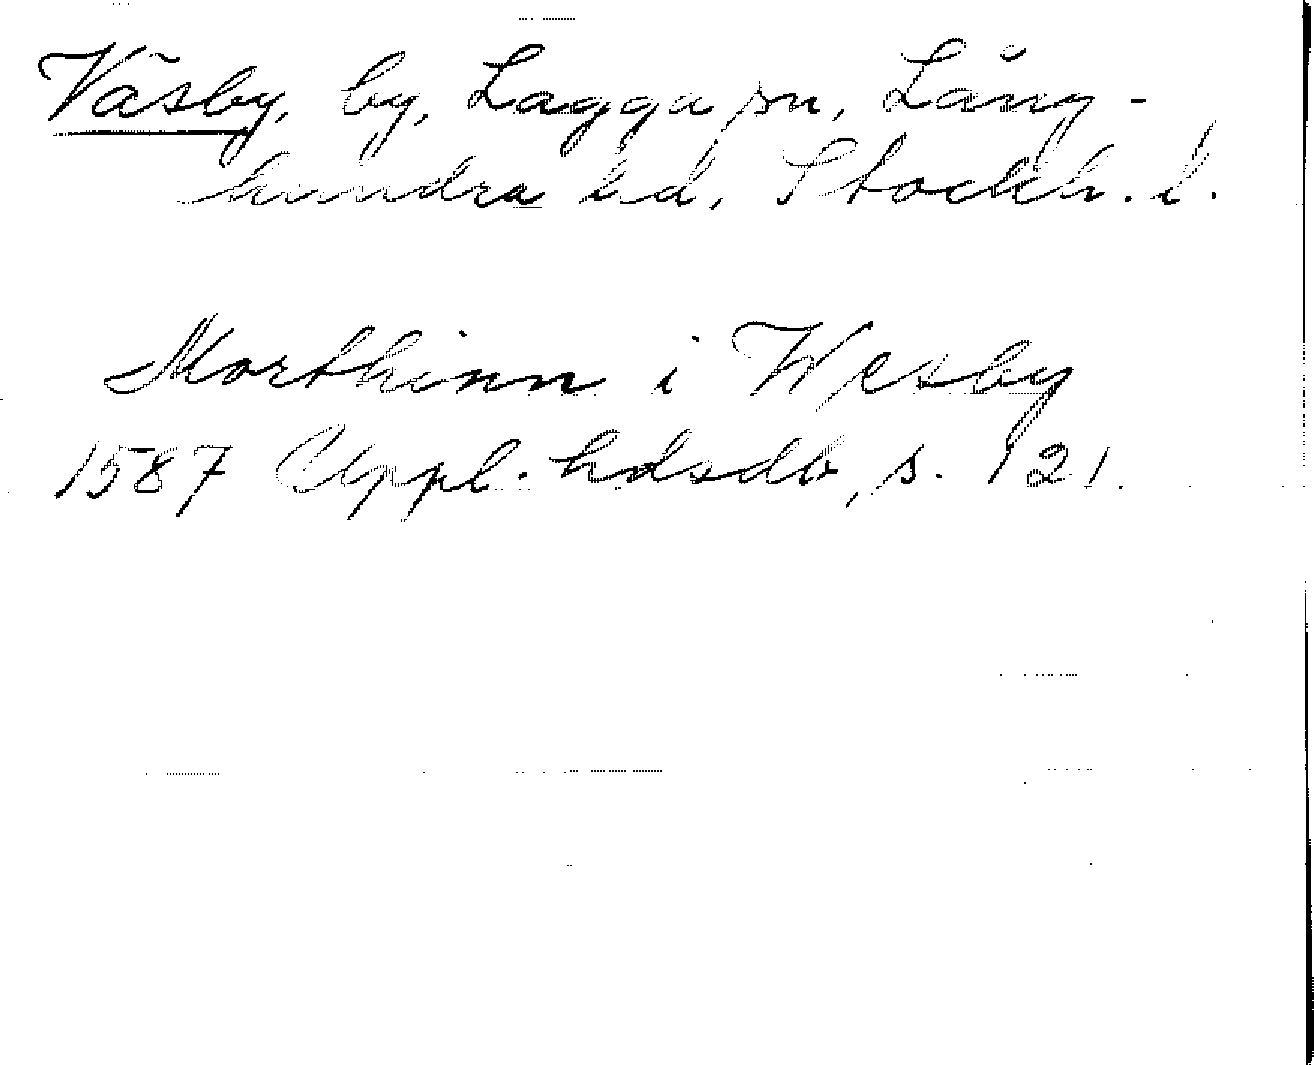 Väsby, by, Lagga sn, Lång-
hundra hd, Stockh. l.
Morthinn i Wesby
1587 Uppl. hdsdb, s. 121.